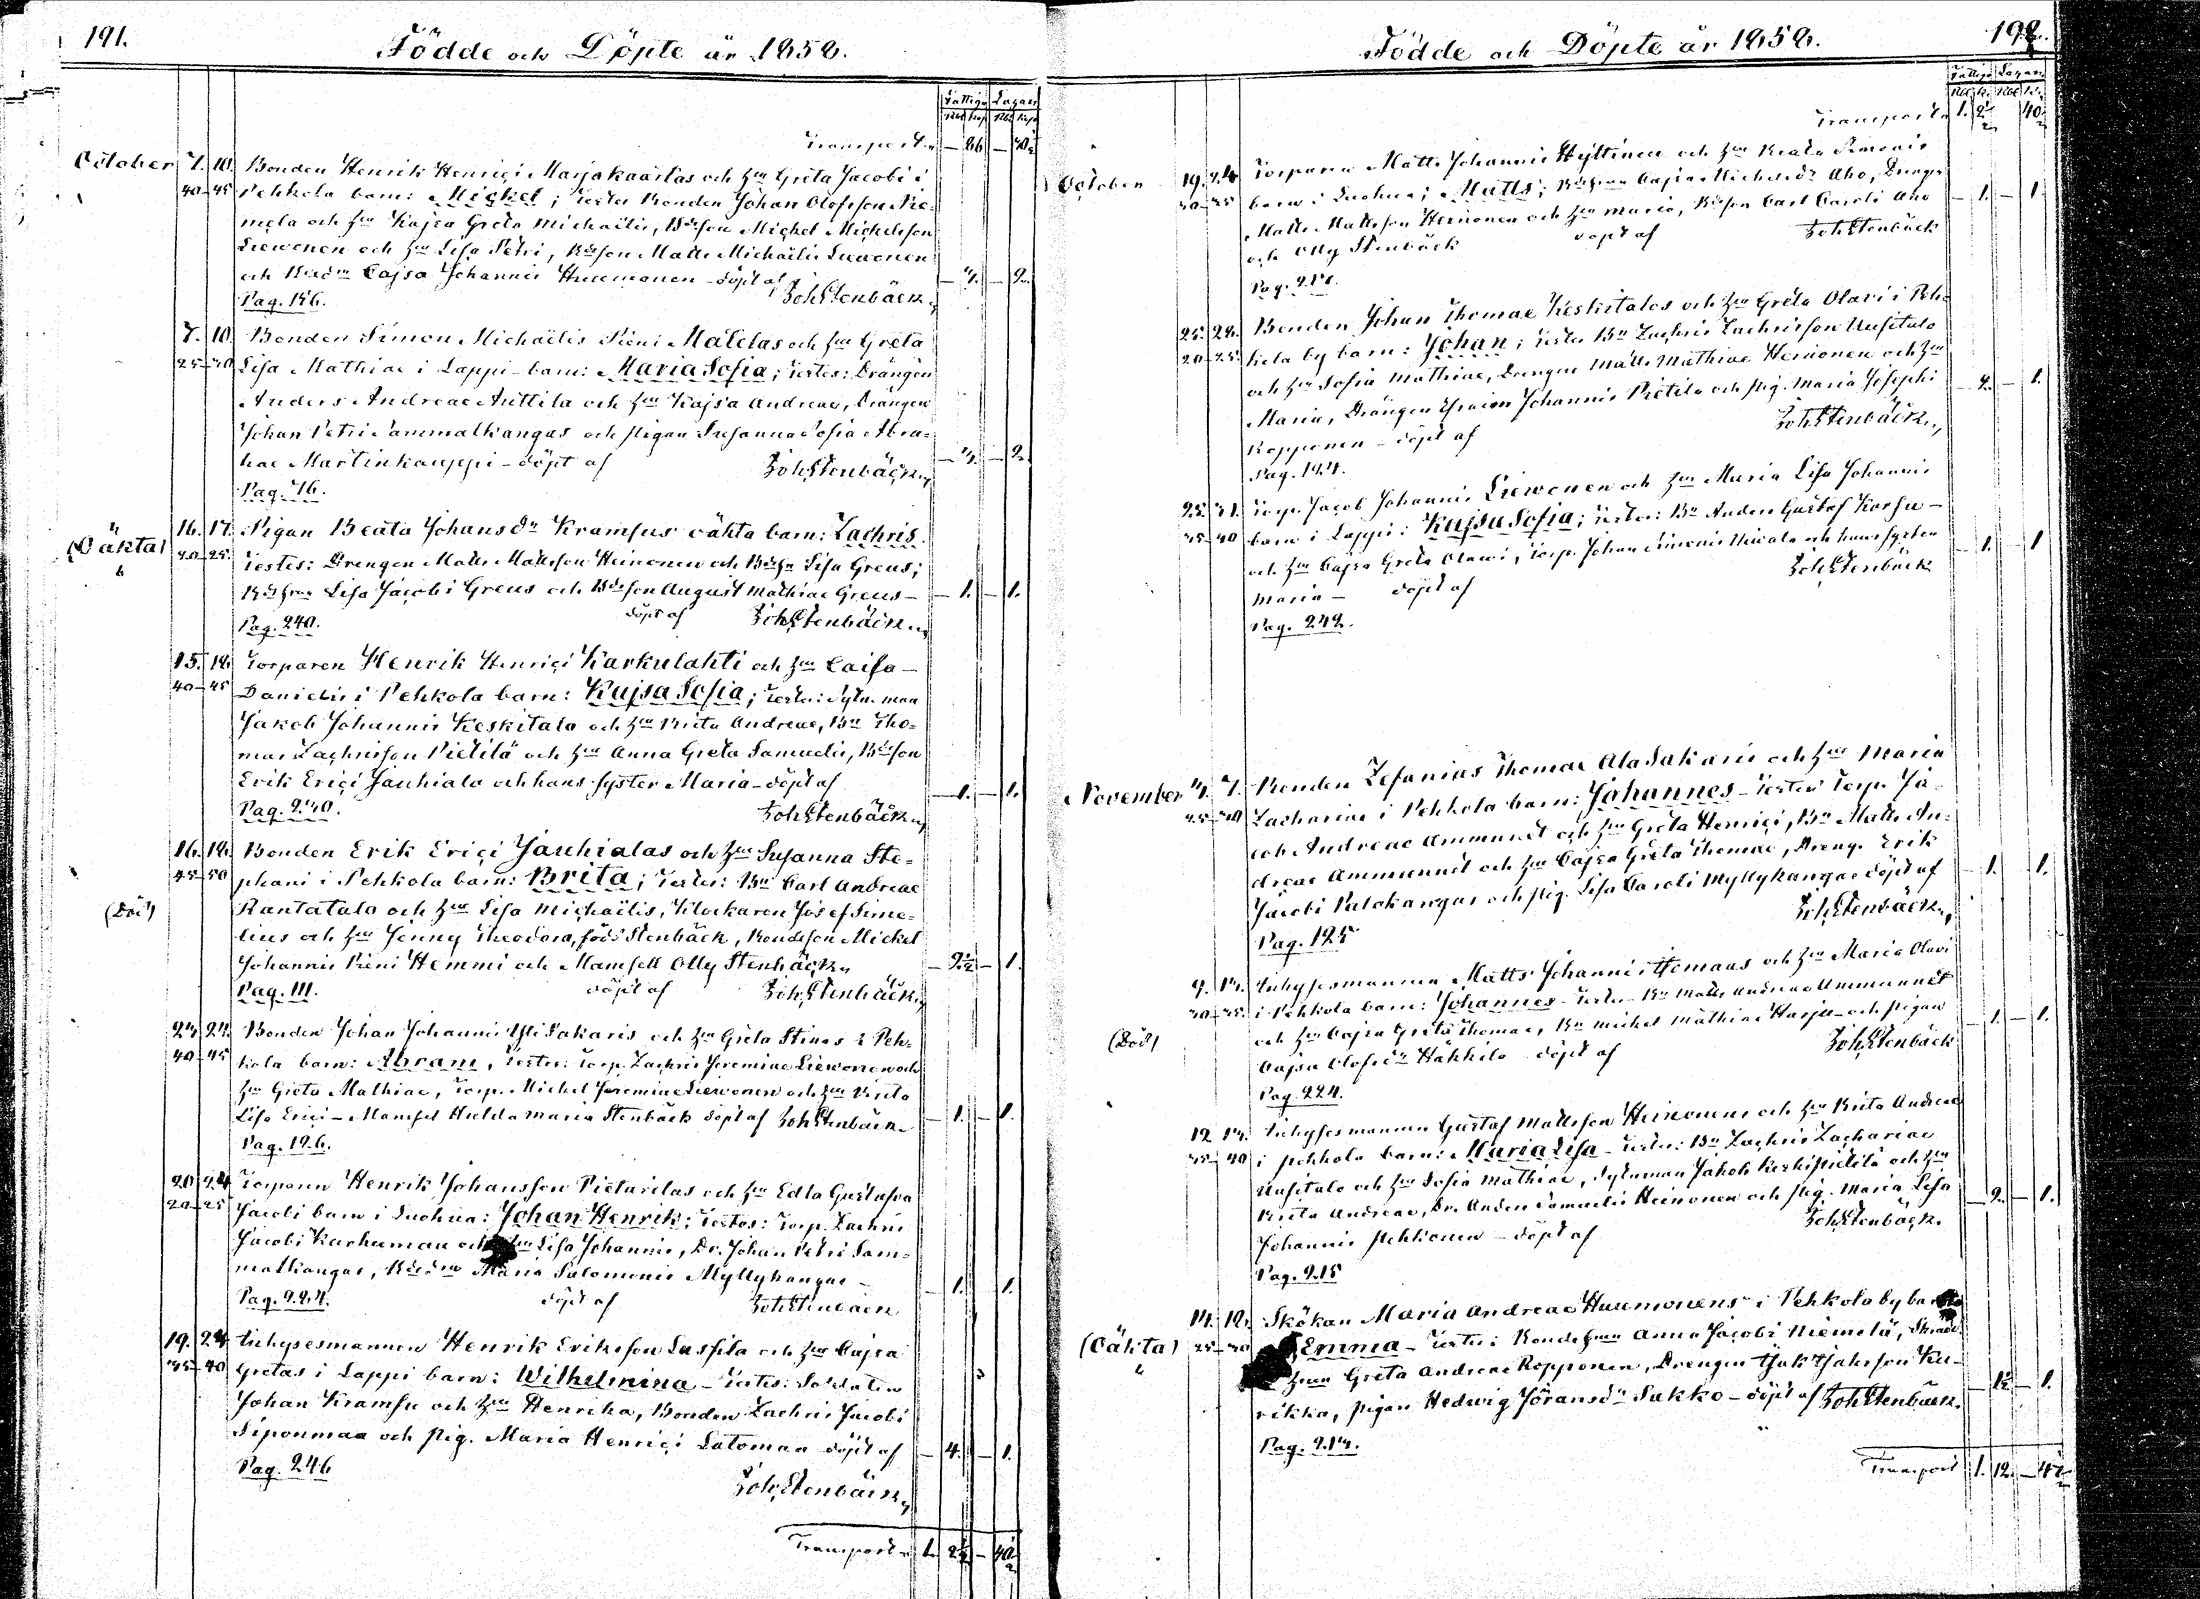 191.
Födde och Döpte år 1858.
Fattige Lagare
Rbl Kop Rbl Kop
Transport — 86 —
October 7. 10. Bonden Henrik Henriçi Marjakaarlas och hu Greta Jacobi i
40–45 Pehkola barn: Michel; Testes Bonden Johan Olofsson Nie-
mela och hu Kajsa Greta Michaelis, Bdeson Michel Michelsson
Liewonen och hu Lisa Petri, Bdeson Matts Michaelis Liewonen
och Cajsa Johannis Huumonen – döpt af — 2.
Pag. 186. Joh Stenbäck
7. 10. Bonden Simon Michaëlis Pieni Matelas och hu Greta
25–30 Lisa Mathiae i Lappi barn: Maria Sofia; Testes: Drängen
Anders Andreae Anttila och hu Kajsa Andreae, Drängen
Johan Petri Sammalkangas och pigan Susanna Sofia Abra-
hae Martinkauppi – döpt af — 2.
Joh Stenbäck
Pag. 76.
(Oäkta) 16. 17. Pigan Beata Johansdr Kramsus oäkta barn: Zachris.
20–25. Testes: Drengen Matts Mattsson Heinonen och Lisa Greus;
Lisa Jacobi Greus och Bdeson August Mathiae Greus – — 1. — 1.
Pag. 240. döpt af Joh Stenbäck
15. 18. Torparen Henrik Henriçi Karkulahti och hu Caisa
40–45 Danielis i Pehkola barn: Kajsa Sofia; Testes: Sytn. man
Jakob Johannis Keskitalo och hu Brita Andreae, Bn Tho-
mas Zachrisson Pietilä och hu Anna Greta Samuelis, Bdeson
Erik Eriçi Jauhiala och hans syster Maria – döpt af — 1. — 1.
Pag. 240. Joh Stenbäck
16. 18. Bonden Erik Eriçi Jauhialas och hu Susanna Ste-
45–50 phani i Pehkola barn: Brita; Testes: Bn Carl Andreae
(Död) Rantatalo och hu Lisa Michaëlis, Klockaren Josef Sime-
lius och hu Jenny Theodora, född Stenbäck, Bondeson Michel
Johannis Pieni Hemmi och Mamsell Olly Stenbäck — 1.
Pag. 111. döpt af Joh Stenbäck
Bonden Johan Johannis Yli Sakaris och hu Greta Stinas i Peh-
40–45 kola barn: Abram, Testes: Torp. Zachris Jeremiae Liewonen och
hu Greta Mathiae, Torp. Michel Jeremiae Liewonen och hu Brita
Lisa Eriçi – Mamsel Hulda Maria Stenbäck döpt af Joh Stenbäck — 1. — 1.
Pag. 196.
20 24 Torparen Henrik Johansson Pietarilas och hu Edla Gustafva
20–25 Jacobi barn i Luohua: Johan Henrik; Testes: Torp. Zachris
Jacobi Karhumaa och hu Lisa Johannis, Dr. Johan Petri Sam-
malkangas, Maria Salomonis Myllykangas – — 1. 1.
döpt af Joh Stenbäck
19. 24 Inhysesmannen Henrik Eriksson Lassila och hu Cajsa
35–40 Gretas i Lappi barn: Wilhelmina – Testes: Soldaten
Johan Kramsu och hu Henrika, Bonden Zachris Jacobi
Siponmaa och pig. Maria Henriçi Latomaa döpt af — 4. — 1.
Pag. 246
Joh Stenbäck
Transport 1.
Födde och Döpte år 1858. 192.
Fattige Lagare
Rbl K. Rbl K.
Transport 1.
October 19. 24 Torparen Matts Johannis Hyttinen och hu Beata Simonis
30–35 barn i Luohua; Matts; Cajsa Aho, Drengen
Matts Mattsson Heinonen och hu Maria, Bdeson Carl Caroli Aho — 1. — 1.
och Olly Stenbäck döpt af Joh Stenbäck
25. 28. Bonden Johan Thomae Keskitalos och hu Greta Olavi i Peh-
20–25 kola by barn: Johan; Testes Bn Zachris Zachrisson Uusitalo
och hu Sofia Mathiae, Drengen Matts Mathiae Heinonen och hu
Maria, Drängen Efraim Johannis Pietila och pig. Maria Josephi — 2. — 1.
Kopponen – döpt af Joh Stenbäck
25. 31. Torp. Jacob Johannis Liewonen och hu Maria Lisa Johannis
35–40 barn i Lappi: Kajsa Sofia; Testes: Bn Anders Gustaf Korsu –
och hu Cajsa Greta Olawi, Torp. Johan Simonis och hans syster — 1. — 1
Maria – döpt af Joh Stenbäck
Pag. 242.
November 7. Bonden Zefanias Thomae Ala Sakaris och hu Maria
25–30 Zachariae i Pehkola barn: Johannes – Testes Torp. Ja-
cob Andreae Ammunet och hu Greta Henriçi, Bn Matts An-
dreae Ammunet och hu Cajsa Greta Thomae, Dreng. Erik
Jacobi Palokangas och pig. Lisa Caroli Myllykangas döpt af — 1. 1.
Joh Stenbäck
Pag. 195
Inhysesmannen Matts Johannis och hu Maria Olavi
30–35. i Pehkola barn: Johannes – Testes – Bn Matts Andreae Ammunet
(Död) och hu Cajsa Greta Thomae, Bn Michel Mathiae Harju – och pigan — 1. — 1.
Cajsa Olofsdr Häkkilä döpt af Joh Stenbäck
Pag. 224.
12 Inhysesmannen Gustaf Mattsson Heinonens och hu Brita Andreae
35–40 i Pehkola barn: Maria Lisa – Testes: Bn Zachris Zachariae
Uusitalo och hu Sofia Mathiae, Sytnman Jakob Keskipietilä och hu
Brita Andreae, Dr. Anders Samuelis Heinonen och pig. Maria Lisa — 2. — 1.
Johannis Pehkonen – döpt af Joh Stenbäck.
Pag. 215
Skökan Maria Andreae Huumonens i Pehkola by
(Oäkta) 25–30 Emma – Testes: Anna Jacobi Niemelä,
Greta Andreae Kopponen, Drengen Isak Isaksson Ku-
rikka, pigan Hedwig Jöransdr Sakko – döpt af Joh Stenbäck. — 1.
Transport 1. 12.